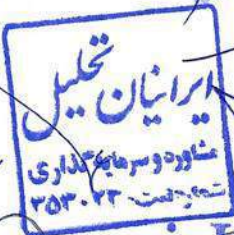 ایرانیان تحلیل
مشاور و سرمایه گذاری
شماره ثبت: ۳۵۳۰۲۳